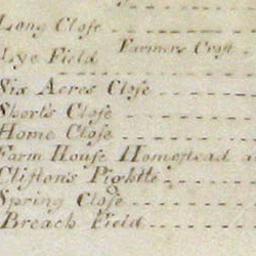 Long Close
Lye Field Farmers Croft
Six Acres Close
Short's Close
Home Close
Farm House Homestead
Clifton's Pightle
Spring Close
Breach Field